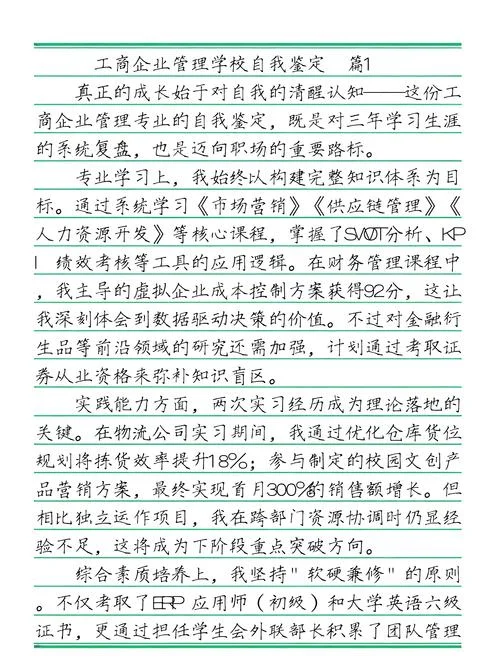 工商企业管理学校自我鉴定 篇1
真正的成长始于对自我的清醒认知——这份工
商企业管理专业的自我鉴定，既是对三年学习生涯
的系统复盘，也是迈向职场的重要路标。
专业学习上，我始终以构建完整知识体系为目
标。通过系统学习《市场营销》《供应链管理》《
人力资源开发》等核心课程，掌握了SWOT分析、KP
I 绩效考核等工具的应用逻辑。在财务管理课程中
，我主导的虚拟企业成本控制方案获得92分，这让
我深刻体会到数据驱动决策的价值。不过对金融衍
生品等前沿领域的研究还需加强，计划通过考取证
券从业资格来弥补知识盲区。
实践能力方面，两次实习经历成为理论落地的
关键。在物流公司实习期间，我通过优化仓库货位
规划将拣货效率提升18%；参与制定的校园文创产
品营销方案，最终实现首月300%的销售额增长。但
相比独立运作项目，我在跨部门资源协调时仍显经
验不足，这将成为下阶段重点突破方向。
综合素质培养上，我坚持"软硬兼修"的原则
。不仅考取了ERP 应用师（初级）和大学英语六级
证书，更通过担任学生会外联部长积累了团队管理